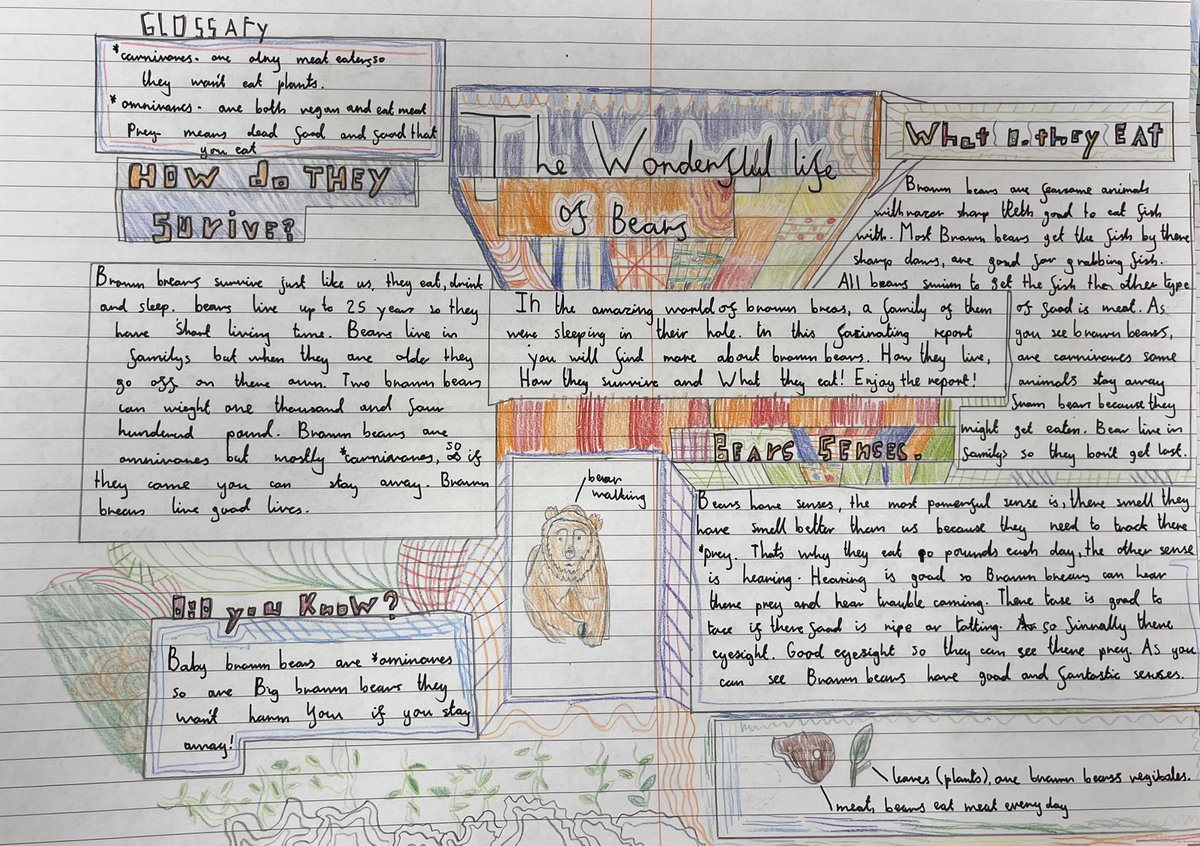 GLOSSAFY
*carnivores- are olny meat eaters so
they wan't eat plants.
*omnivores- are both vegan and eat meat
Prey- means dead food and food that
you eat
HOW do THEY
SURIVE?
Brown brears survive just like us, they eat, drink
and sleep. bears live up to 25 years so they
have short living time. Bears live in
familys but when they are older they
go off on there own. Two brown bears
can wieght one thousand and four
hundered pound. Brown bears are
omnivores but mostly *carnivores, so if
they come you can stay away. Brown
brears live good lives.
The Wonderful life
of Bears
In the amazing world of brown brears, a family of them
were sleeping in their hole. In this fazinating report
you will find more about brown bears. How they live,
How they survive and What they eat! Enjoy the report!
What do they EAt
Brown bears are fearsome animals
with razor sharp teeth good to eat fish
with. Most Brown bears get the fish by there
sharp claws, are good for grabbing fish.
All bears swim to get the fish the other type
of food is meat. As
you see brown bears,
are carnivores some
animals stay away
from bears because they
might get eaten. Bear live in
familys so they don't get lost.
BEARS SENSES.
Bears have senses, the most powerful sense is, there smell they
have smell better than us because they need to track there
*prey. That's why they eat 90 pounds each day, the other sense
is hearing. Hearing is good so Brown brears can hear
there prey and hear trouble coming. There tase is good to
tase if there food is ripe or totting. so finnally there
eyesight. Good eyesight so they can see there prey. As you
can see Brown bears have good and fantastic senses.
bear
walking
DiD you Know?
Baby brown bears are *ominores
so are Big brown bears they
wan't harm you if you stay
away!
leaves (plants), are brown bears vegibales.
meat, bears eat meat everyday